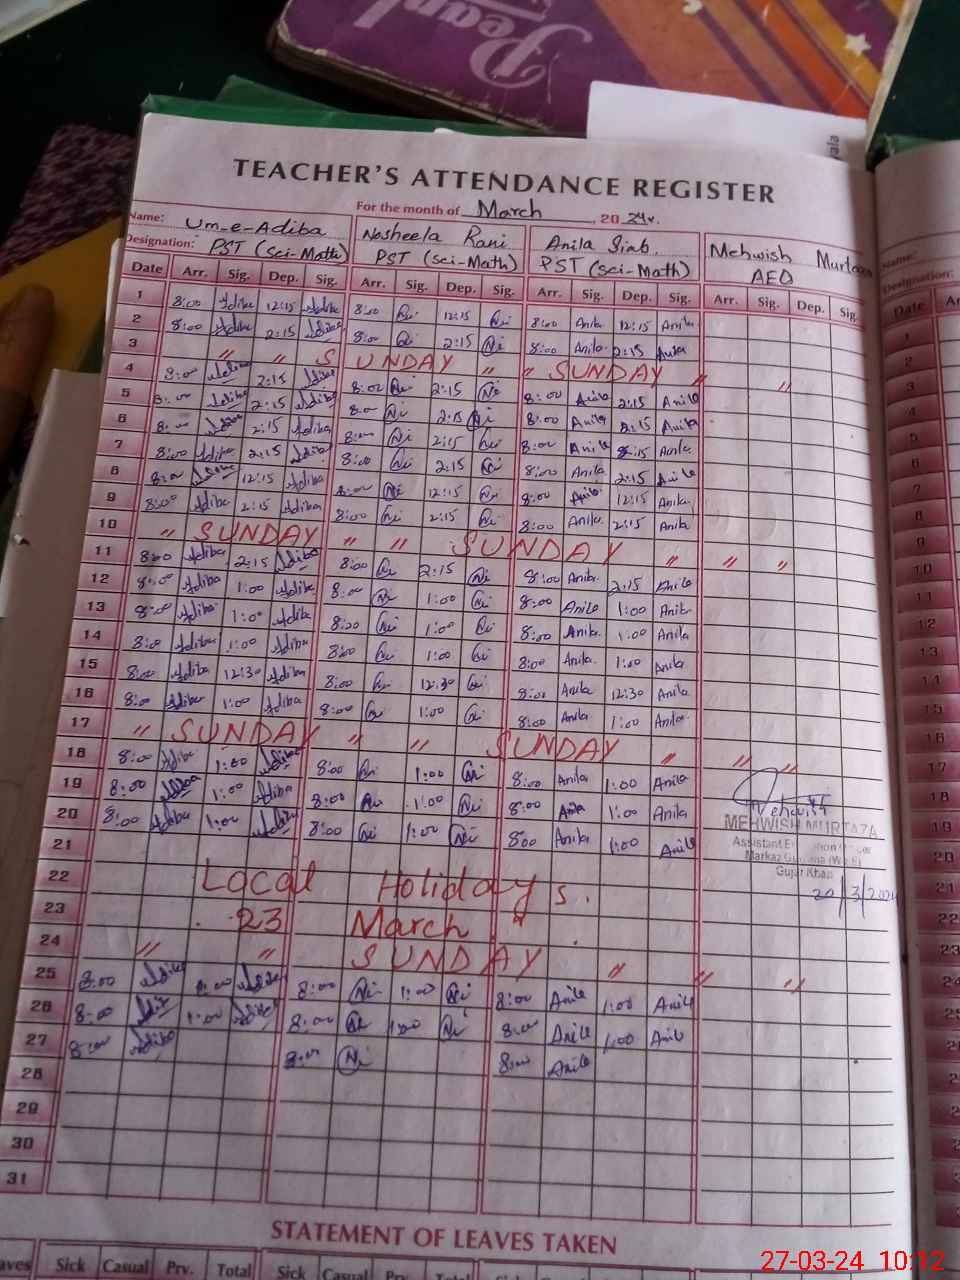 Pearl
TEACHER'S ATTENDANCE REGISTER
For the month of March, 2024.
Name: Um-e-Adiba Nosheela Rani Anila Siab. Mehwish Murtaza
Designation: PST (Sci-Math) PST (Sci-Math) PST (Sci-Math) AEO
Date Arr. Sig. Dep. Sig. Arr. Sig. Dep. Sig. Arr. Sig. Dep. Sig. Arr. Sig. Dep. Sig.
1 8:00 Adiba 12:15 Adiba 8:00 Ni 12:15 Ni 8:00 Anila 12:15 Anila
2 8:00 Adiba 2:15 Adiba 8:00 Ni 2:15 Ni 8:00 Anila 2:15 Anila
3 " " SUNDAY " " SUNDAY " "
4 8:00 Adiba 2:15 Adiba 8:00 Ni 2:15 Ni 8:00 Anila 2:15 Anila
5 8:00 Adiba 2:15 Adiba 8:00 Ni 2:15 Ni 8:00 Anila 2:15 Anila
6 8:00 Adiba 2:15 Adiba 8:00 Ni 2:15 Ni 8:00 Anila 2:15 Anila
7 8:00 Adiba 2:15 Adiba 8:00 Ni 2:15 Ni 8:00 Anila 2:15 Anila
8 8:00 Adiba 12:15 Adiba 8:00 Ni 12:15 Ni 8:00 Anila 12:15 Anila
9 8:00 Adiba 2:15 Adiba 8:00 Ni 2:15 Ni 8:00 Anila 2:15 Anila
10 " SUNDAY " " SUNDAY " " "
11 8:00 Adiba 2:15 Adiba 8:00 Ni 2:15 Ni 8:00 Anila 2:15 Anila
12 8:00 Adiba 1:00 Adiba 8:00 Ni 1:00 Ni 8:00 Anila 1:00 Anila
13 8:00 Adiba 1:00 Adiba 8:00 Ni 1:00 Ni 8:00 Anila 1:00 Anila
14 8:00 Adiba 1:00 Adiba 8:00 Ni 1:00 Ni 8:00 Anila 1:00 Anila
15 8:00 Adiba 12:30 Adiba 8:00 Ni 12:30 Ni 8:00 Anila 12:30 Anila
16 8:00 Adiba 1:00 Adiba 8:00 Ni 1:00 Ni 8:00 Anila 1:00 Anila
17 " SUNDAY " " SUNDAY " " "
18 8:00 Adiba 1:00 Adiba 8:00 Ni 1:00 Ni 8:00 Anila 1:00 Anila
19 8:00 Adiba 1:00 Adiba 8:00 Ni 1:00 Ni 8:00 Anila 1:00 Anila
20 8:00 Adiba 1:00 Adiba 8:00 Ni 1:00 Ni 8:00 Anila 1:00 Anila
MEHWISH MURTAZA
Assistant Education Officer
Markaz
Gujar Khan
20/3/2024
21
22 Local Holidays.
23 23 March
24 " " SUNDAY " " "
25 8:00 Adiba 1:00 Adiba 8:00 Ni 1:00 Ni 8:00 Anila 1:00 Anila
26 8:00 Adiba 1:00 Adiba 8:00 Ni 1:00 Ni 8:00 Anila 1:00 Anila
27 8:00 Adiba 8:00 Ni 8:00 Anila
28
29
30
31
STATEMENT OF LEAVES TAKEN
Sick Casual Prv. Total Sick Casual Prv. Total Sick Casual
27-03-24 10:12